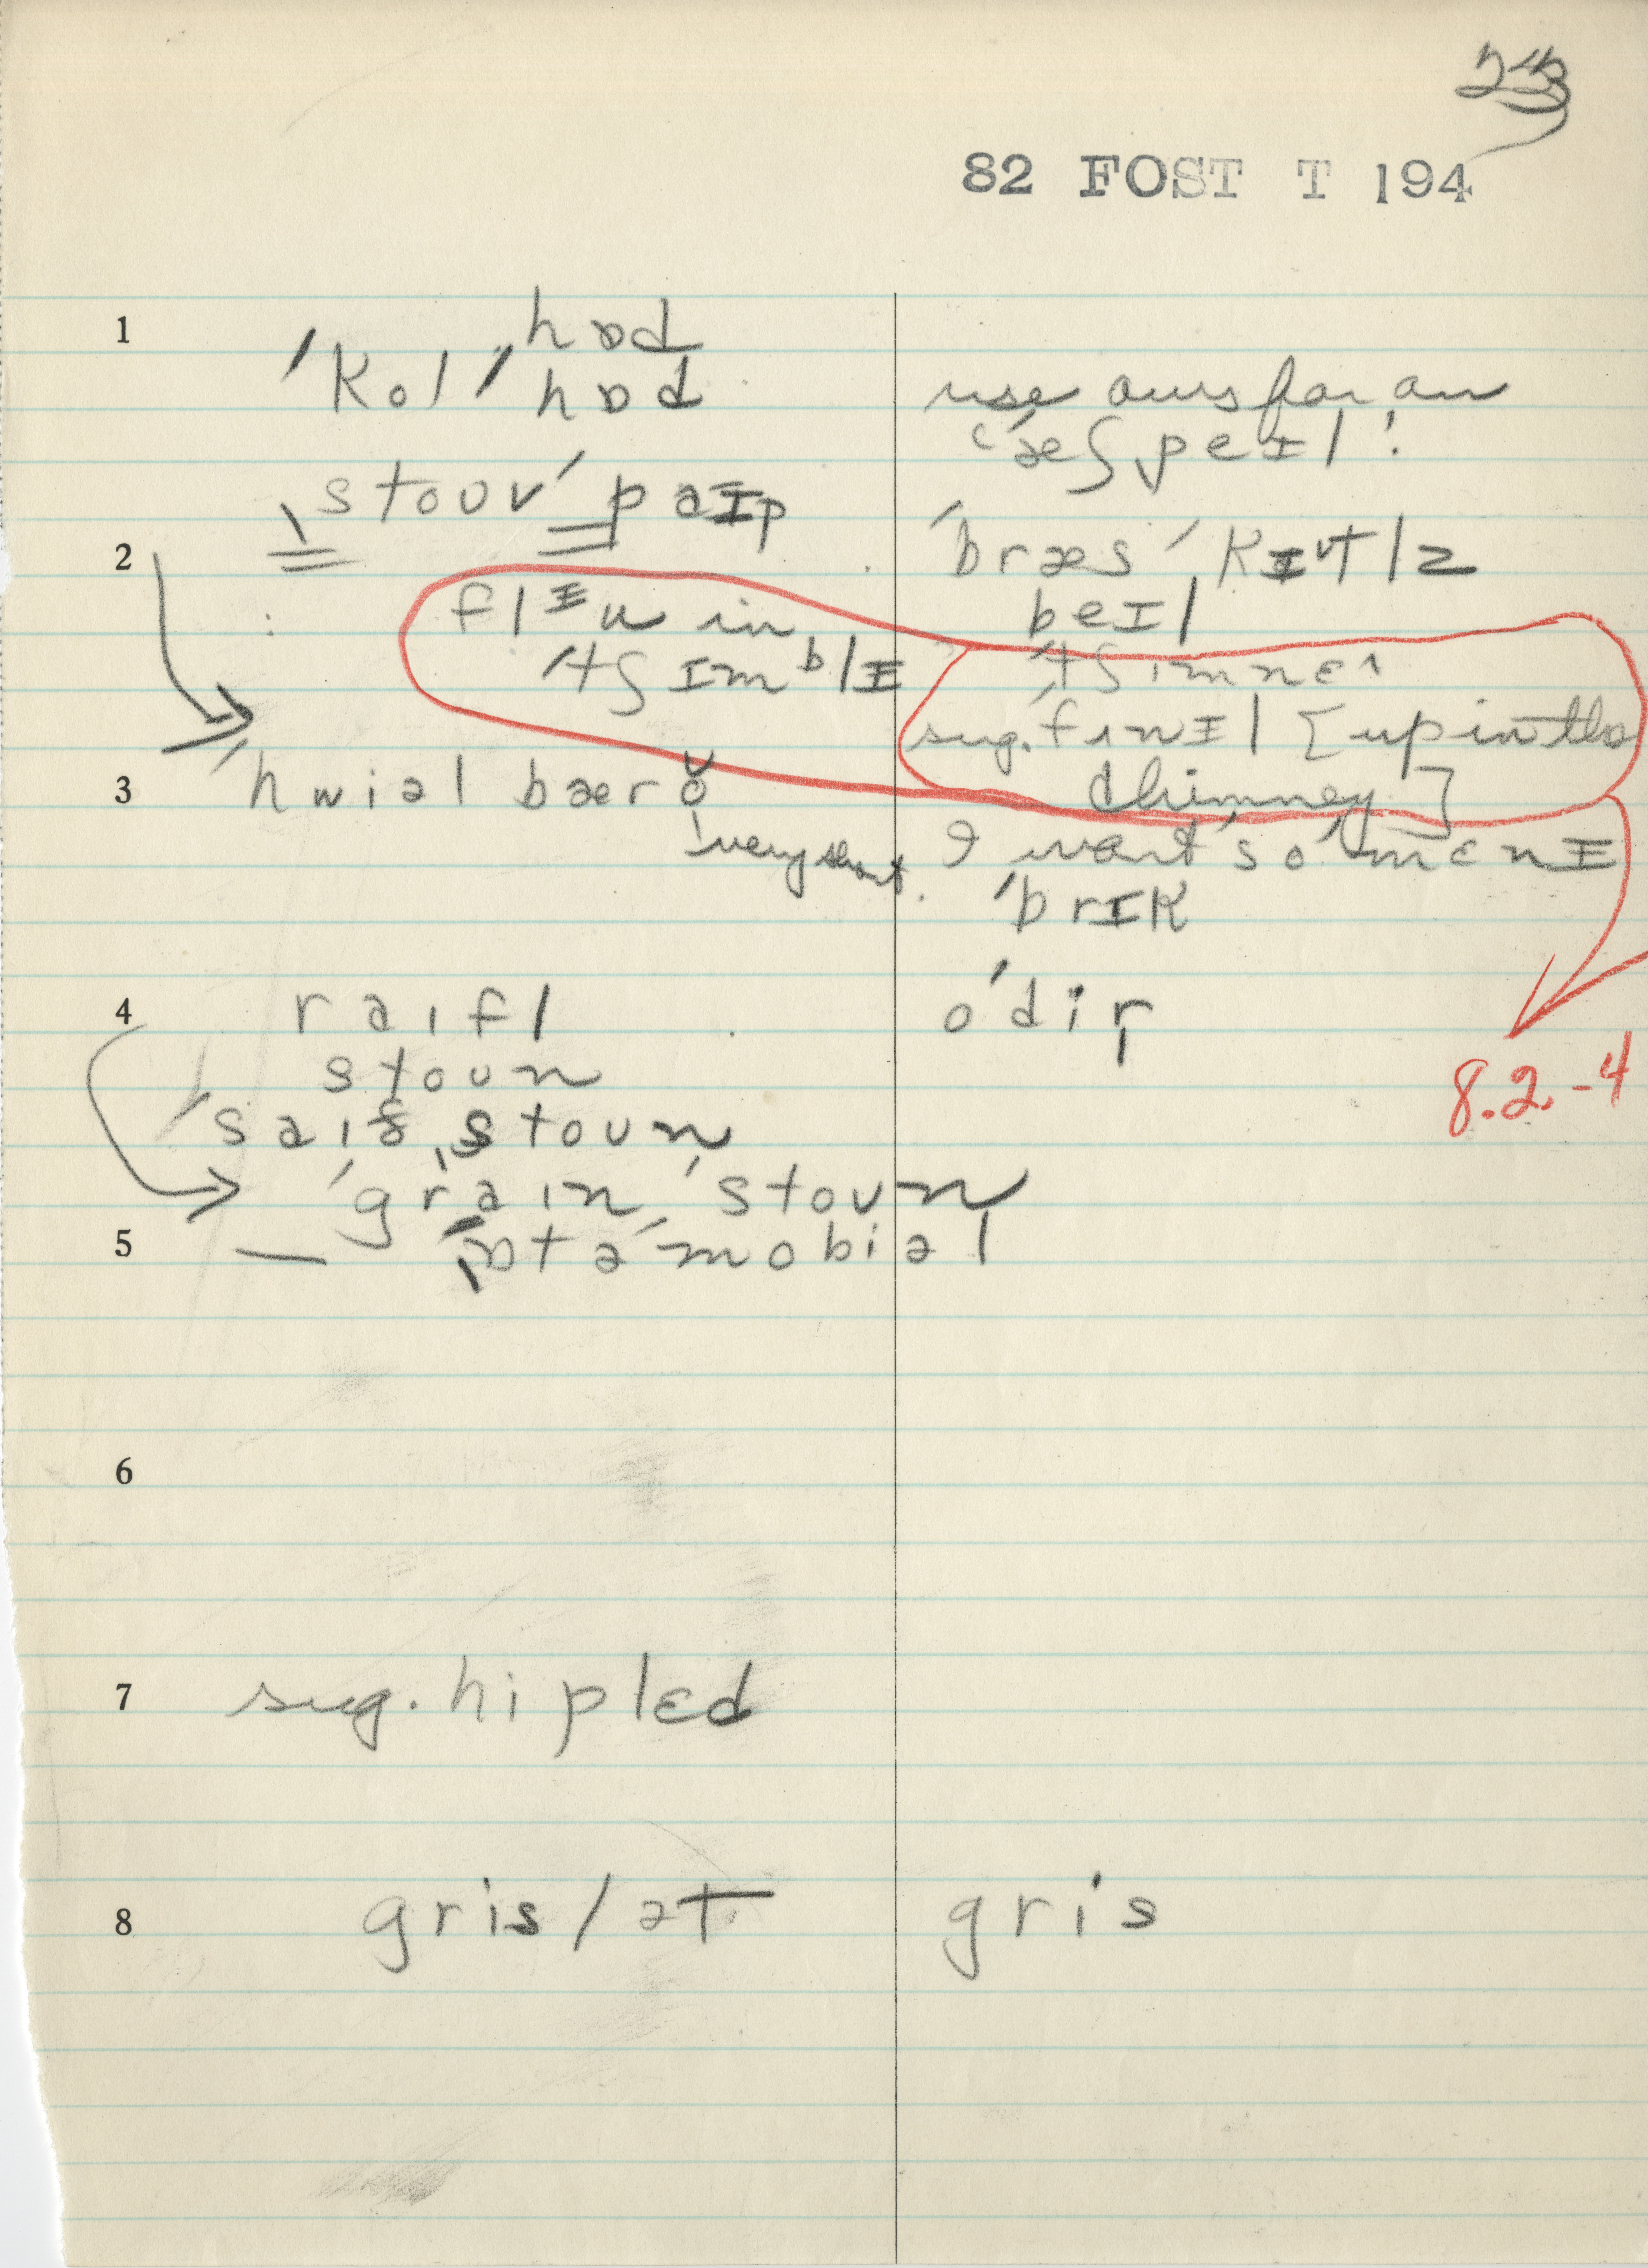 82 FOST T 194
1
hɒd
ˈkol ˈhɒd
use ours for an
ˈæʃ peɪl!
stouv ˈpaɪp
2
ˈbræs ˈkɪtlz
beɪl
in
ˈtʃɪmblɪ
ˈtʃɪmneɪ
sug. ˈfʌnɪl [up in the
chimney]
3
ˈhwiəl bærŏ
very short.
I want ˈso ˈmɛnɪ
ˈbrɪk
4
raɪfl
oˈdir
stoun
ˈsaɪð ˌstoun
ˈgraɪn ˌstoun
5
— ˌɒtəˈmobiəl
8.2.-4
6
7
sug. hi plɛd
8
gris / ət
gris